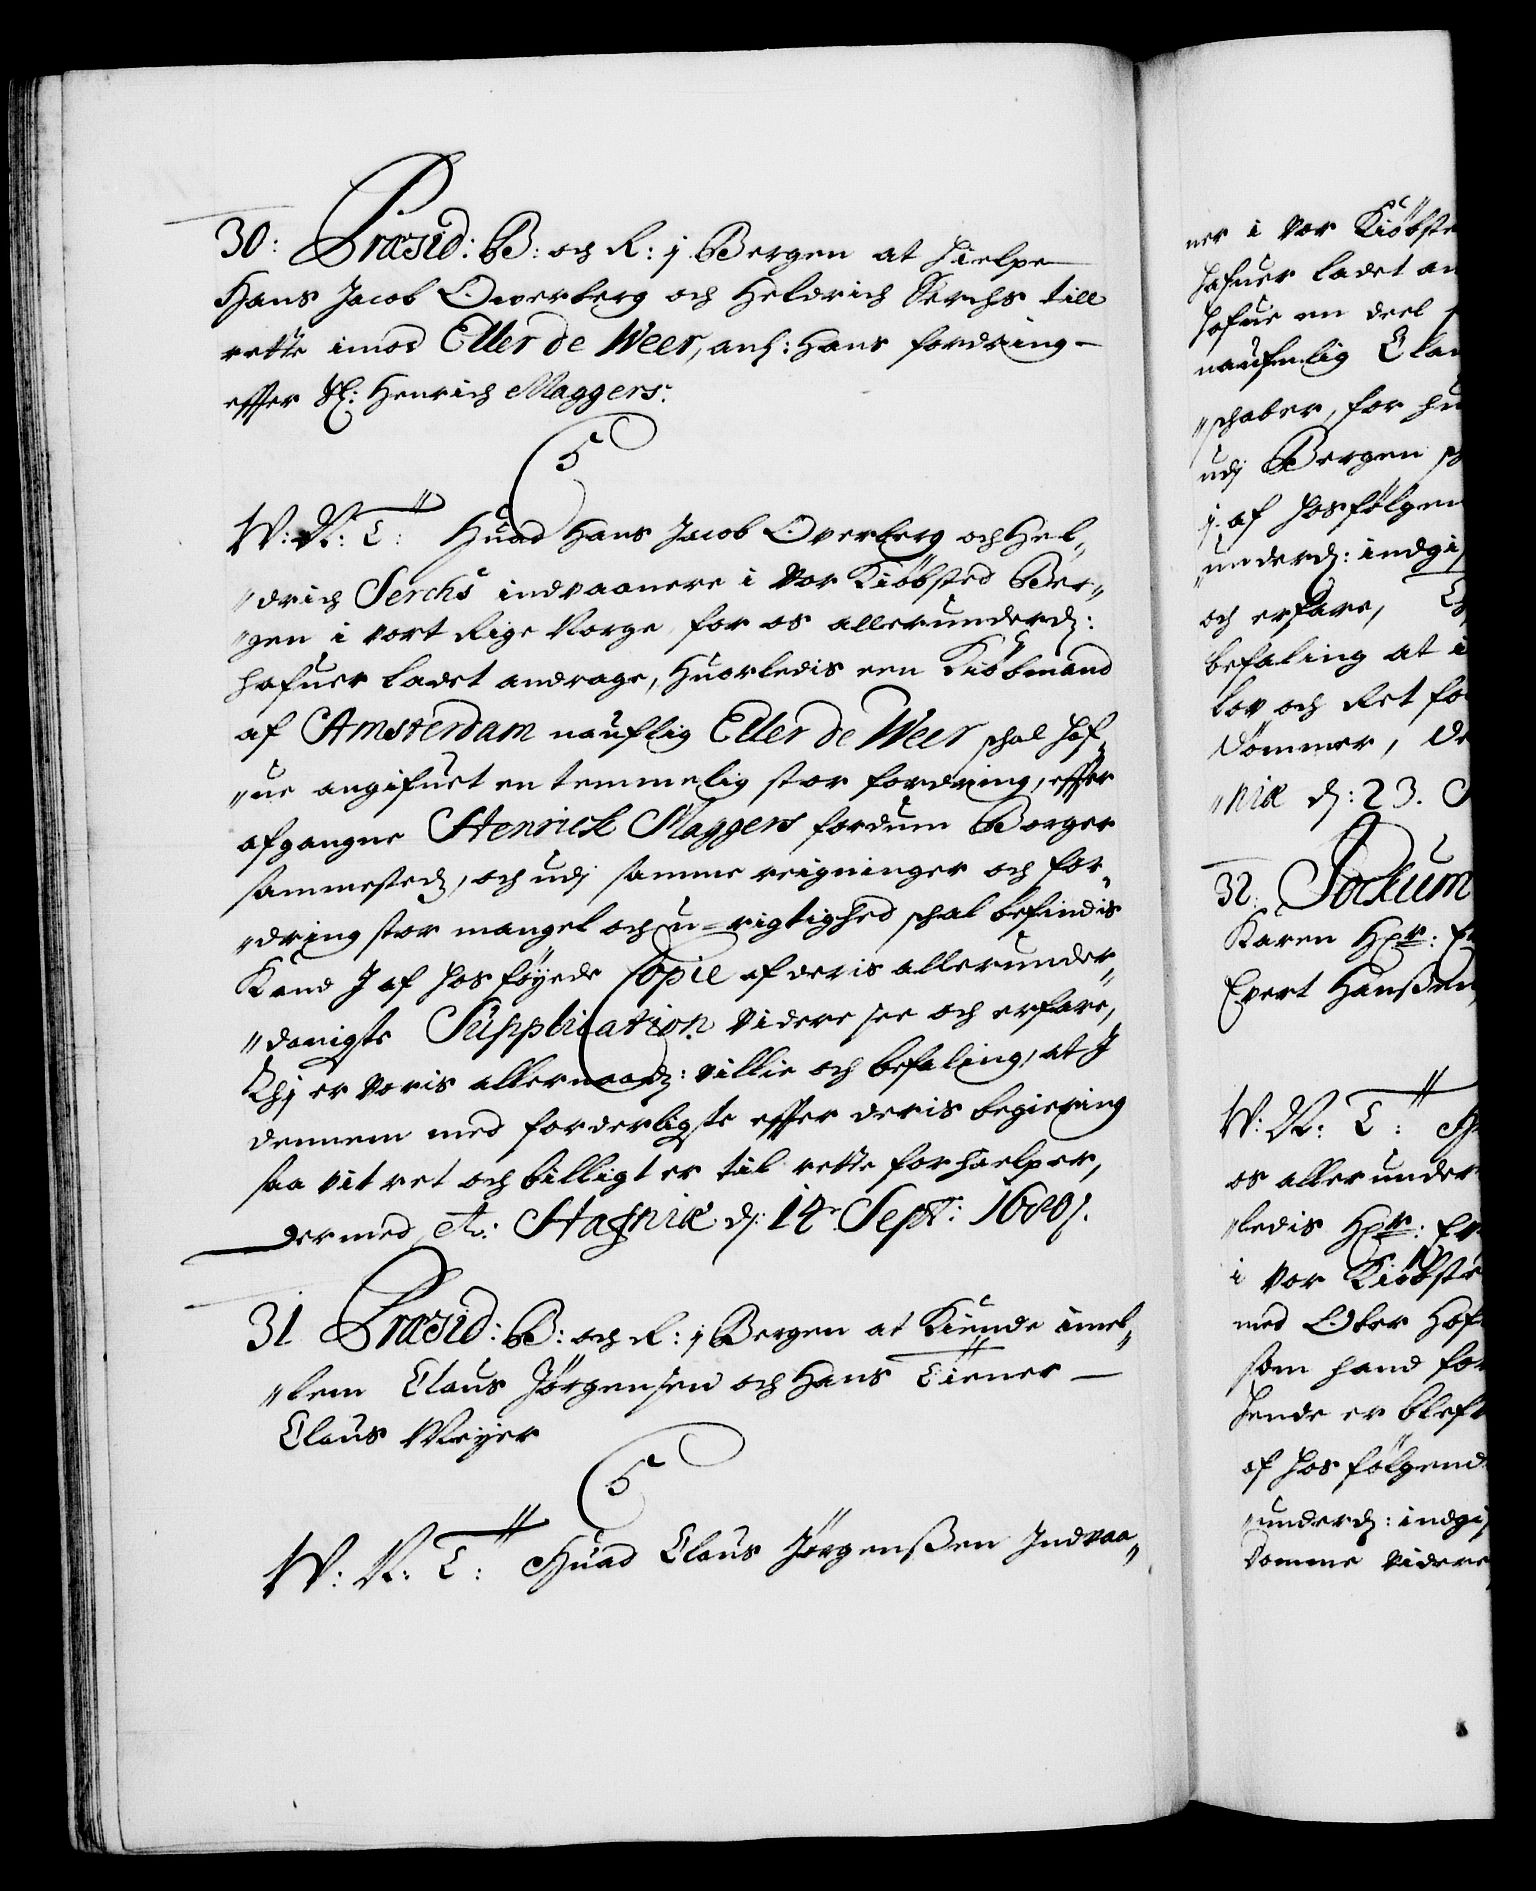 30: Præsid: B: och R: j Bergen at hielpe
Hans Jacob Overberg och Heldrich Serchs till
rette imod Eller de Weer, anl: hans fordring
effter Sl: Henrich Maggers.
C 5
W: N: T: Huad Hans Jacob Overberg och Hel„
„drich Serchs indvaanere i Vor Kiøbsted Ber„
„gen i vort Rige Norge for os allerunderd:
hafuer ladet andrage, huorledis een Kiøbmand
af Amsterdam naufnlig Eller de Weer schal haf„
„ue angifuet en temmelig stor fordring, effter
afgangne Henrick Maggers fordum Borger
sammested, och udj samme reigninger och for„
„dring stor mangel och u-rigtighed schal befindis
Kand J af hosføyede Copie af deris allerunder„
„danigste Supplication videre see och erfare,
Thj er Voris allernaad: villie och befaling, at J
dennem med forderligste effter deris begiering
saa vit ret och billigt er til rette forhielper,
Dermed etc: Hafniæ d: 14 Sept: 1680.
31 Præsid: B: och R: j Bergen at Kiende imel„
„lem Claus Jørgensen och Hans Tiener
Claus Meyer
C 5
W: N: T: Huad Claus Jørgenßen Indvaa„
ner i Vor Kiøbste
hafuer ladet an
hafue en deel
naufnlig Clau
„schaber, for hu
udj Bergen
j af hosfølgen
„underd: indgi
och erfare,
befaling at i
Lov och Ret fo
Dømmer, De
„niæ d: 23. S
32:
Karen Hr:
Evert Hanßen
W: N: T:
os allerunder
„ledis Hr: Ev
i Vor Kiøbste
med Eker
som hand for
hende er blef
af hosfølgend
„underd: indgif
Domme videre